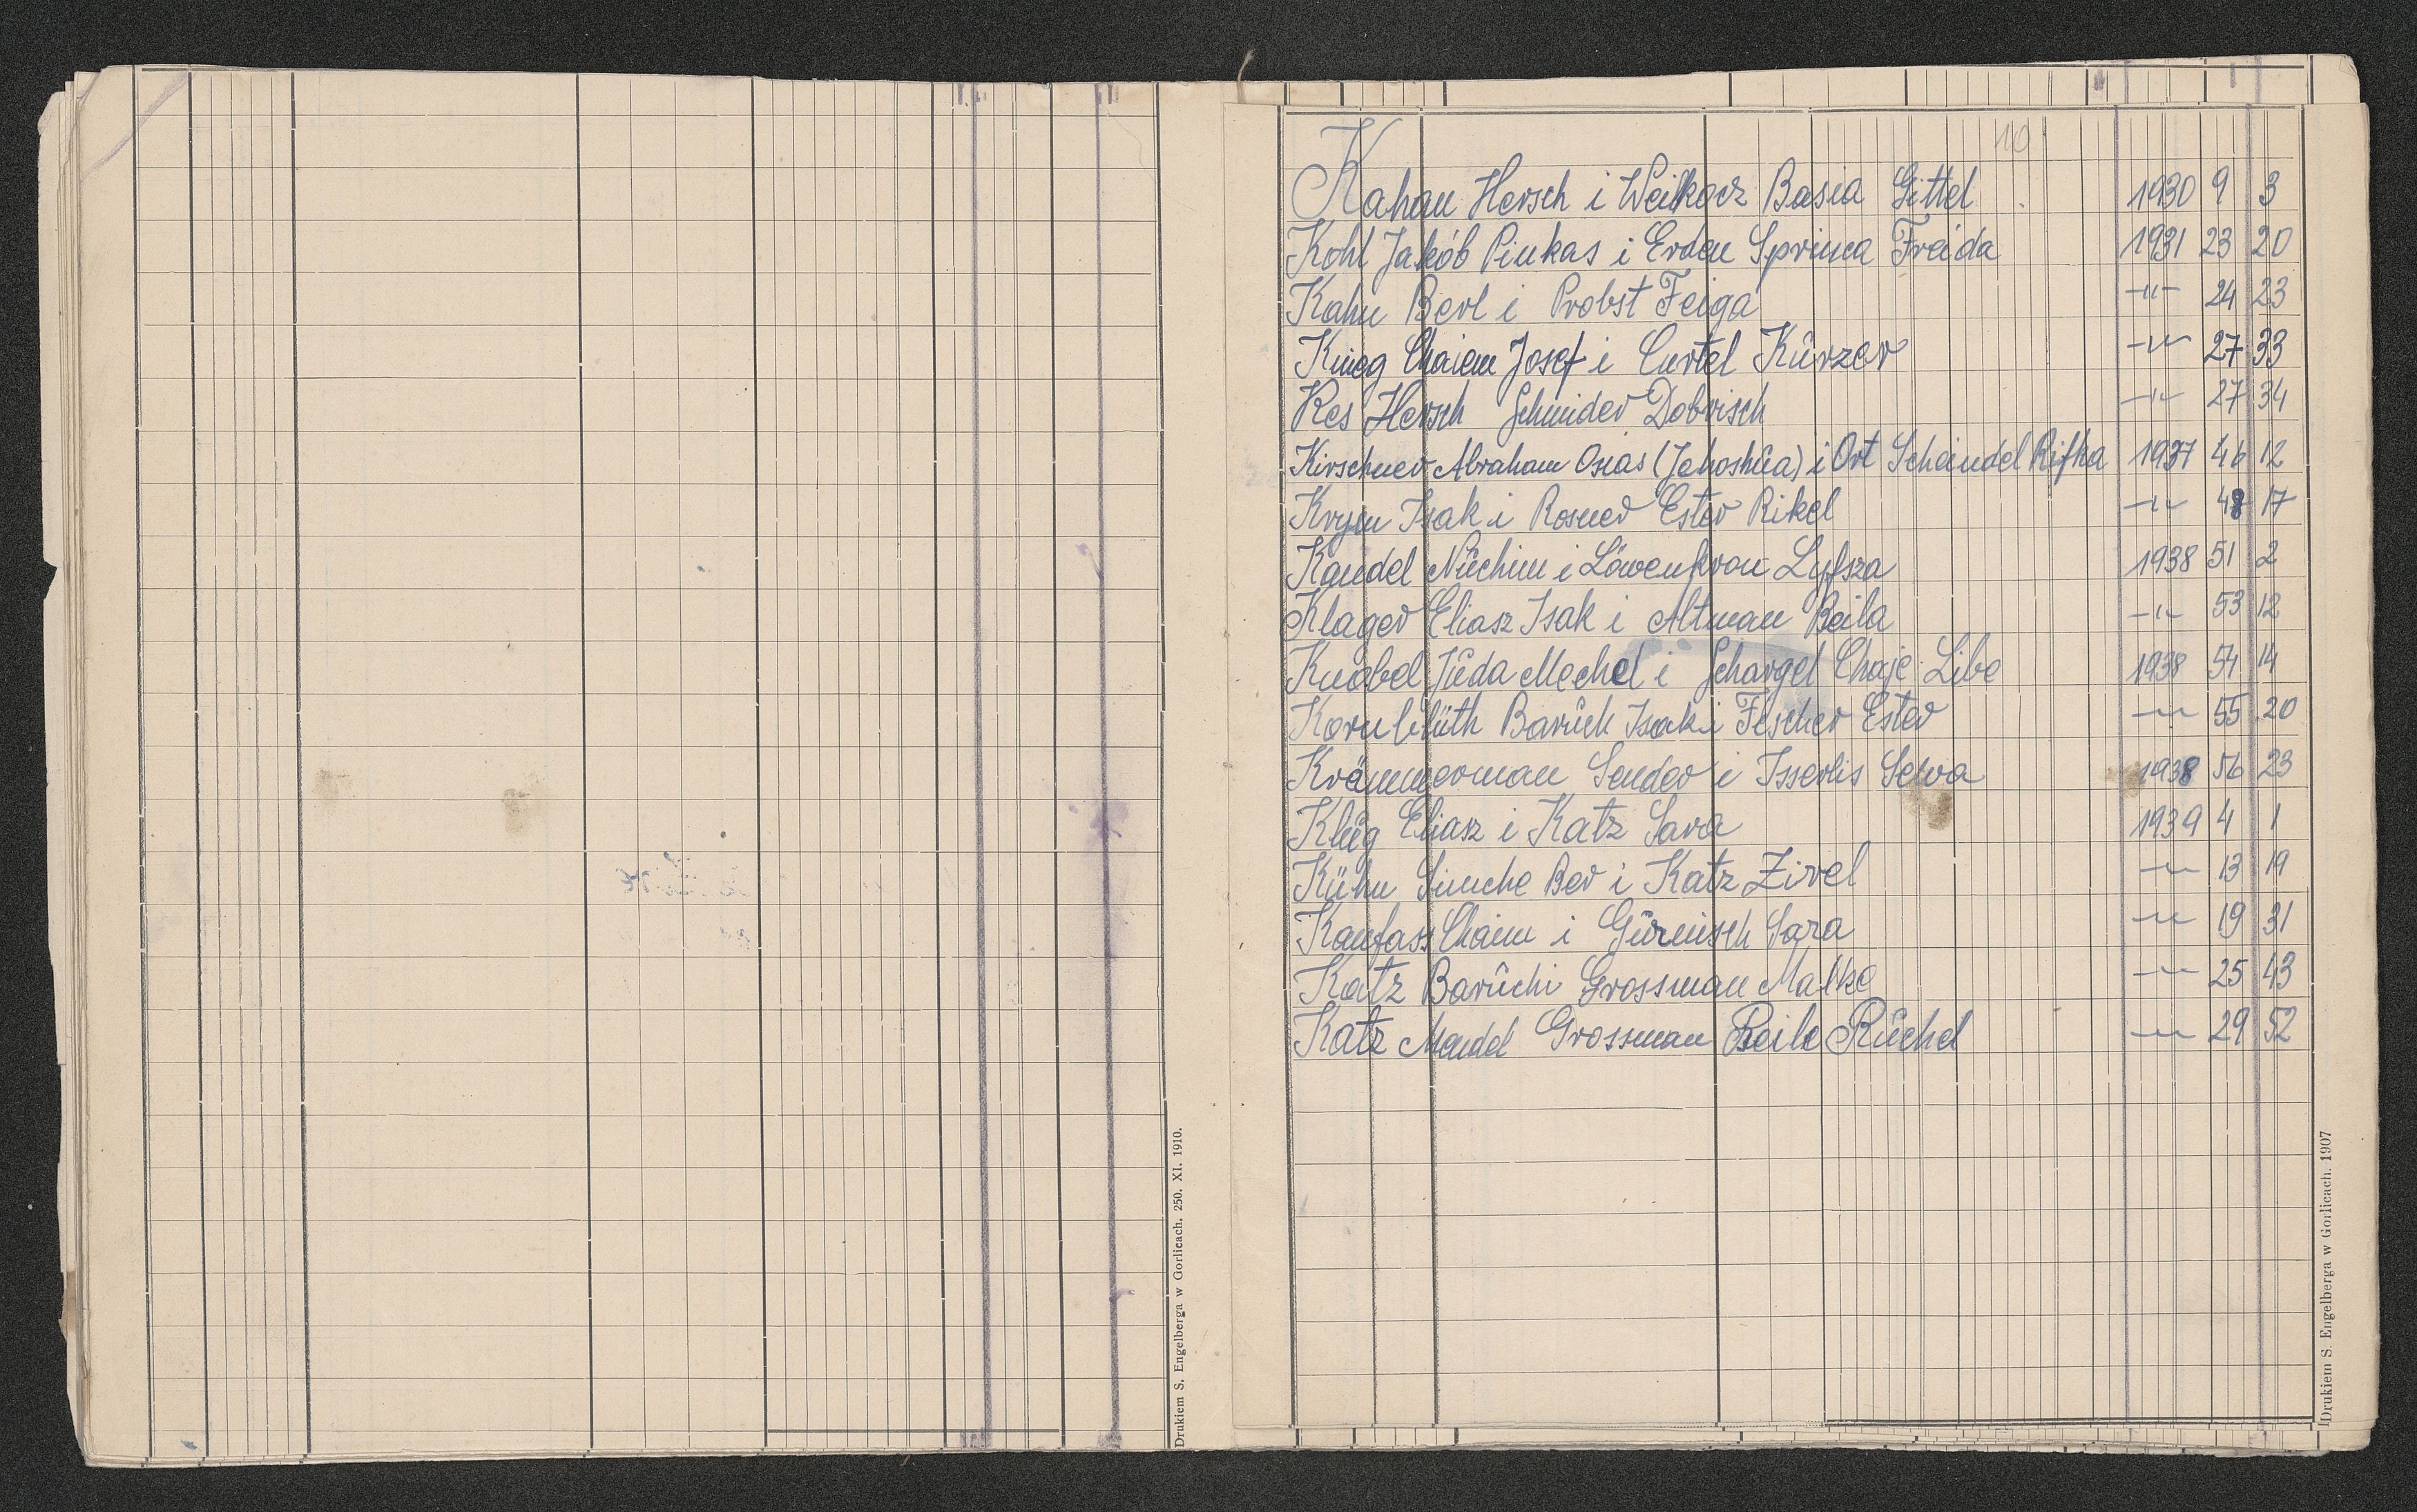 Drukiem S. Engelberga w Gorlicach. 250. XI. 1910.
10
Kahan Hersch i Weilkocz Basia Gittel 1930 9 3
Kohl Jakób Pinkas i Erden Sprinca Freida 1931 23 20
Kahn Berl i Probst Feiga -"- 24 23
Knieg Chaiem Josef i Curtel Kůrzer -"- 27 33
Kes Hersch Schmider Dobrisch -"- 27 34
Kirschner Abraham Osias (Jehoshůa) i Ort Scheindel Rifka 1937 46 12
Krym Isak i Rosner Ester Rikel -"- 48 17
Kandel Nůchim i Löwenkron Lyfsza 1938 51 2
Klager Eliasz Isak i Altman Beila -"- 53 12
Knobel Jůda Mechel i Schargel Chaje Libe 1938 54 14
Kornblüth Barůch Isak i Fescher Ester -"- 55 20
Krämmerman Sender i Isserlis Serva 1938 56 23
Klůg Eliasz i Katz Sara 1939 4 1
Kühn Simche Ber i Katz Zirel -"- 13 19
Kanfass Chaim i Gůrnisch Sara -"- 19 31
Katz Barůch i Grossman Malke -"- 25 43
Katz Mendel Grossman Beile Růchel -"- 29 52
Drukiem S. Engelberga w Gorlicach. 1907